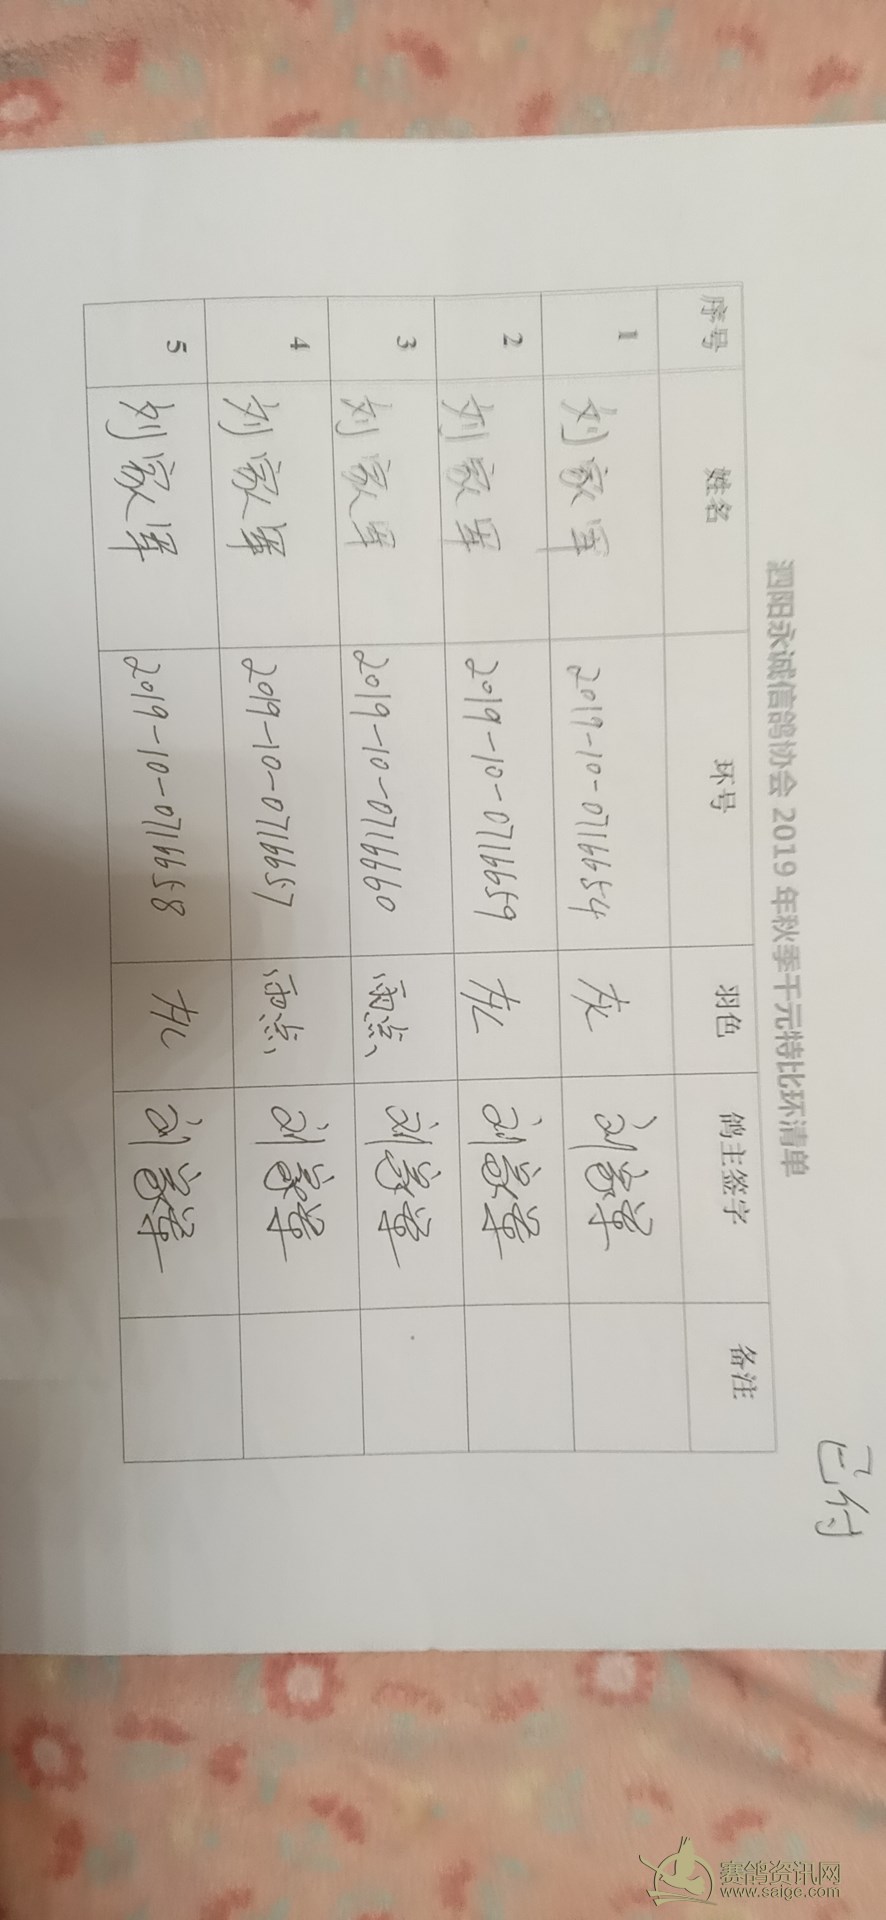 已付
泗阳永诚信鸽协会 2019 年秋季千元特比环清单
序号 姓名 环号 羽色 鸽主签字 备注
1 刘家军 2019-10-0716654 灰 刘家军
2 刘家军 2019-10-0716659 灰 刘家军
3 刘家军 2019-10-0716660 雨点 刘家军
4 刘家军 2019-10-0716657 雨点 刘家军
5 刘家军 2019-10-0716658 灰 刘家军
赛鸽资讯网
www.saigc.com